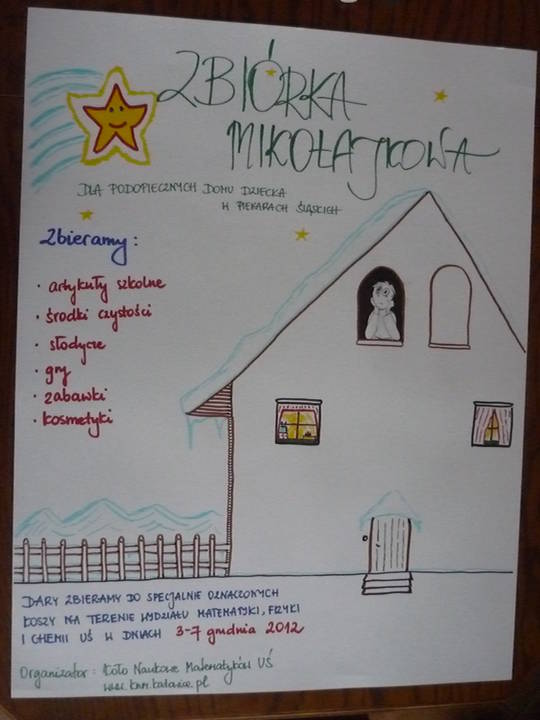 ZBIÓRKA
MIKOŁAJKOWA
DLA PODOPIECZNYCH DOMU DZIECKA
W PIEKARACH ŚLĄSKICH
Zbieramy:
· artykuły szkolne
· środki czystości
· słodycze
· gry
· zabawki
· kosmetyki
DARY ZBIERAMY DO SPECJALNIE OZNACZONYCH
KOSZY NA TERENIE WYDZIAŁU MATEMATYKI, FIZYKI
I CHEMII UŚ W DNIACH 3-7 grudnia 2012
Organizator: Koło Naukowe Matematyków UŚ
www.knm.katowice.pl